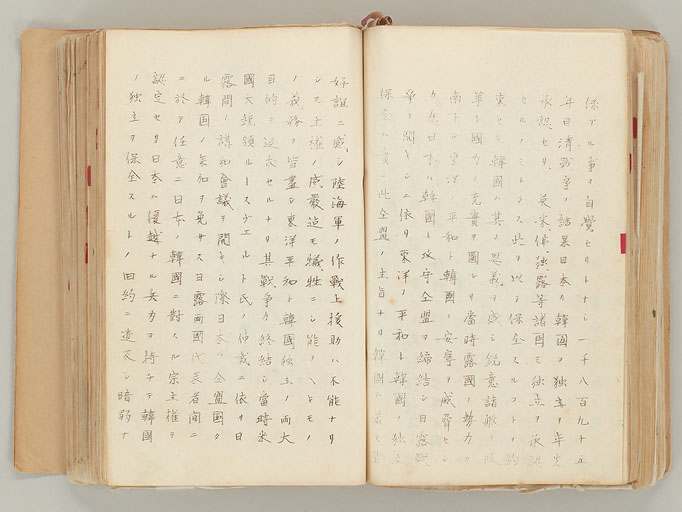 保アル事ヲ自覺セリトナシ一千八百九十五
年日清戰爭ノ結果日本ハ韓國ヲ獨立
承認セリ 英米佛獨露等諸国モ独立ヲ承認
セルノミナラス此ヲ以テ保全スルコトヲ約
東セリ韓國ハ其ノ恩義ヲ感シ鋭意諸般ノ
革ト國力ノ充實ヲ圖レリ當時露國ノ勢力
南下シ東洋ノ平和ト韓國ノ安寧ヲ威脅セシ
日本ハ韓國ト攻守仝盟ヲ締結シ日露戰
爭ヲ開キシニ依リ東洋ノ平和ト韓國ノ独立
保全ハ實ニ此仝盟ノ主旨ナリ韓國ハ
好誼ニ感シ陸海軍ノ作戰上援助ハ不能ナリ
シモ主權ノ威嚴迄モ犠牲ニシ能ノヘトモノ
ノ義務ヲ皆盡シ東洋平和ト韓國独立ノ両大
目的ニ追求セルナリ其戰爭カ終結シ當時米
國大統領ルースヴエルト氏ノ仲裁ニ依リ日
露間ノ講和會議ヲ開キシ際日本ハ仝盟国タ
ル韓国ノ參加ヲ免サス日露両國代表者間ニ
ニ於テ任意ニ日本ノ韓國ニ對スル宗主權ヲ
認定セリ日本ハ優越ナル兵力ヲ持チテ韓國
ノ独立ヲ保全スルトノ旧約ニ違反シ暗弱ナ